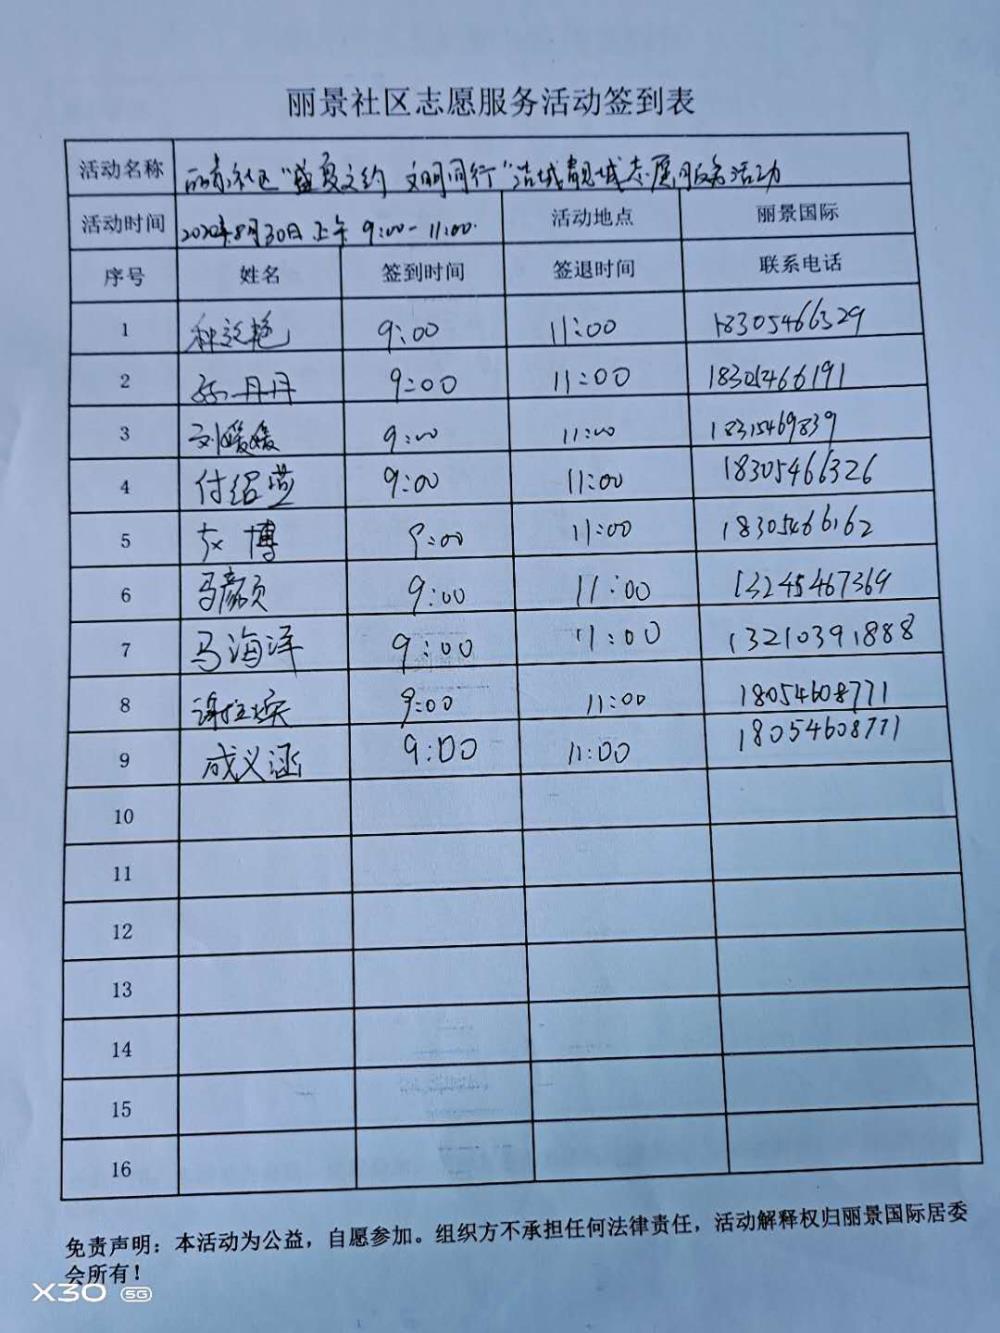 丽景社区志愿服务活动签到表
活动名称 丽景社区"盛夏之约 文明同行"洁城靓城志愿服务活动
活动时间 2022年8月30日上午 9:00-11:00. 活动地点 丽景国际
序号 姓名 签到时间 签退时间 联系电话
1 9:00 11:00 18305466329
2 丹丹 9:00 11:00
3 刘媛媛 9:00 11:00 18315469839
4 付绍燕 9:00 11:00 18305466326
5 博 9:00 11:00 18305466162
6 9:00 11:00 13245467369
7 马海洋 9:00 11:00 13210391888
8 9:00 11:00 18054608771
9 成义涵 9:00 11:00 18054608771
10
11
12
13
14
15
16
免责声明：本活动为公益，自愿参加。组织方不承担任何法律责任，活动解释权归丽景国际居委
会所有！
X30 5G